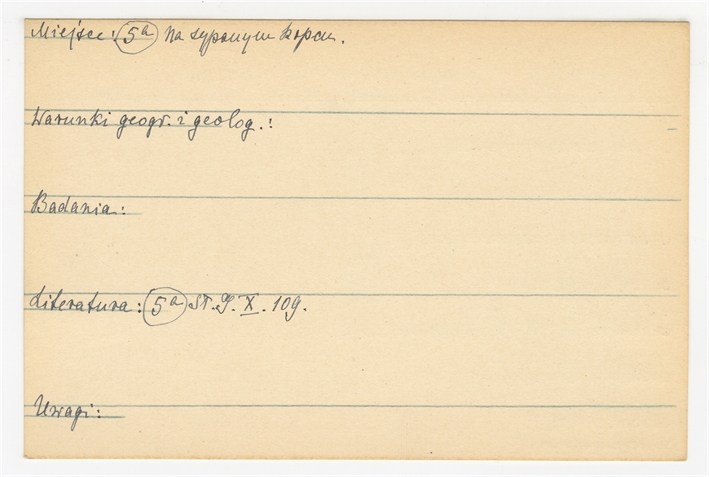 Miejsce: 5a Na sypanym kopcu.
Warunki geogr. i geolog.:
Badania:
Literatura: 5a St. J. X. 109.
Uwagi: